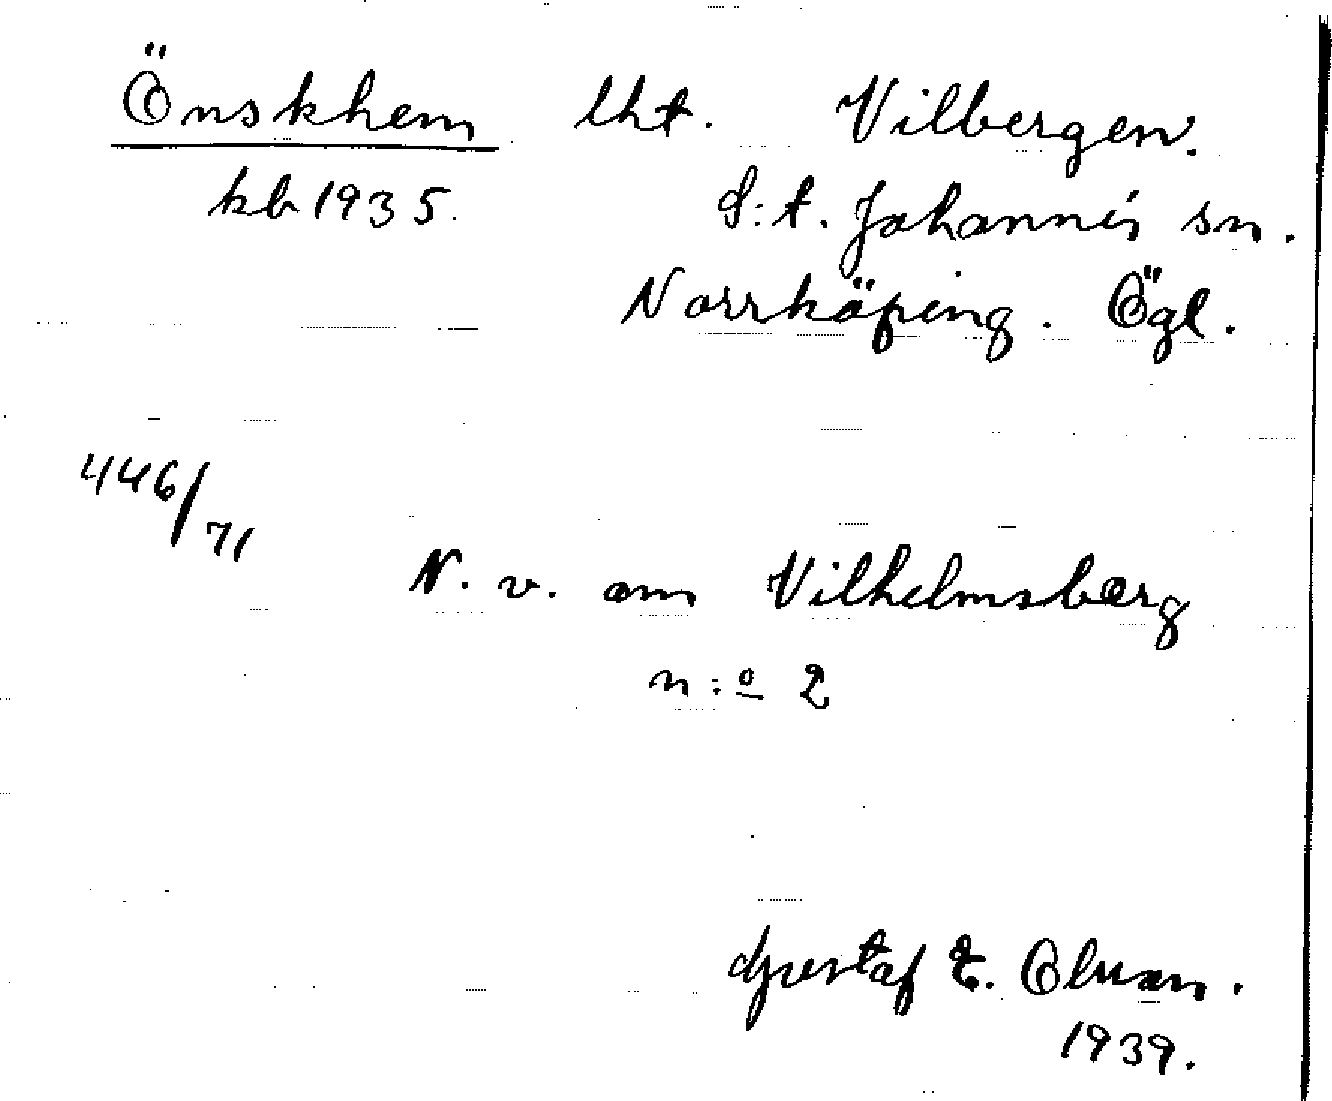 Önskhem lht. Vilbergen.
kb 1935. S:t. Johannes sn.
Norrköping. Ögl.
446/71
N. v. om Vilhelmsberg
n:o 2
Gustaf E.
1939.